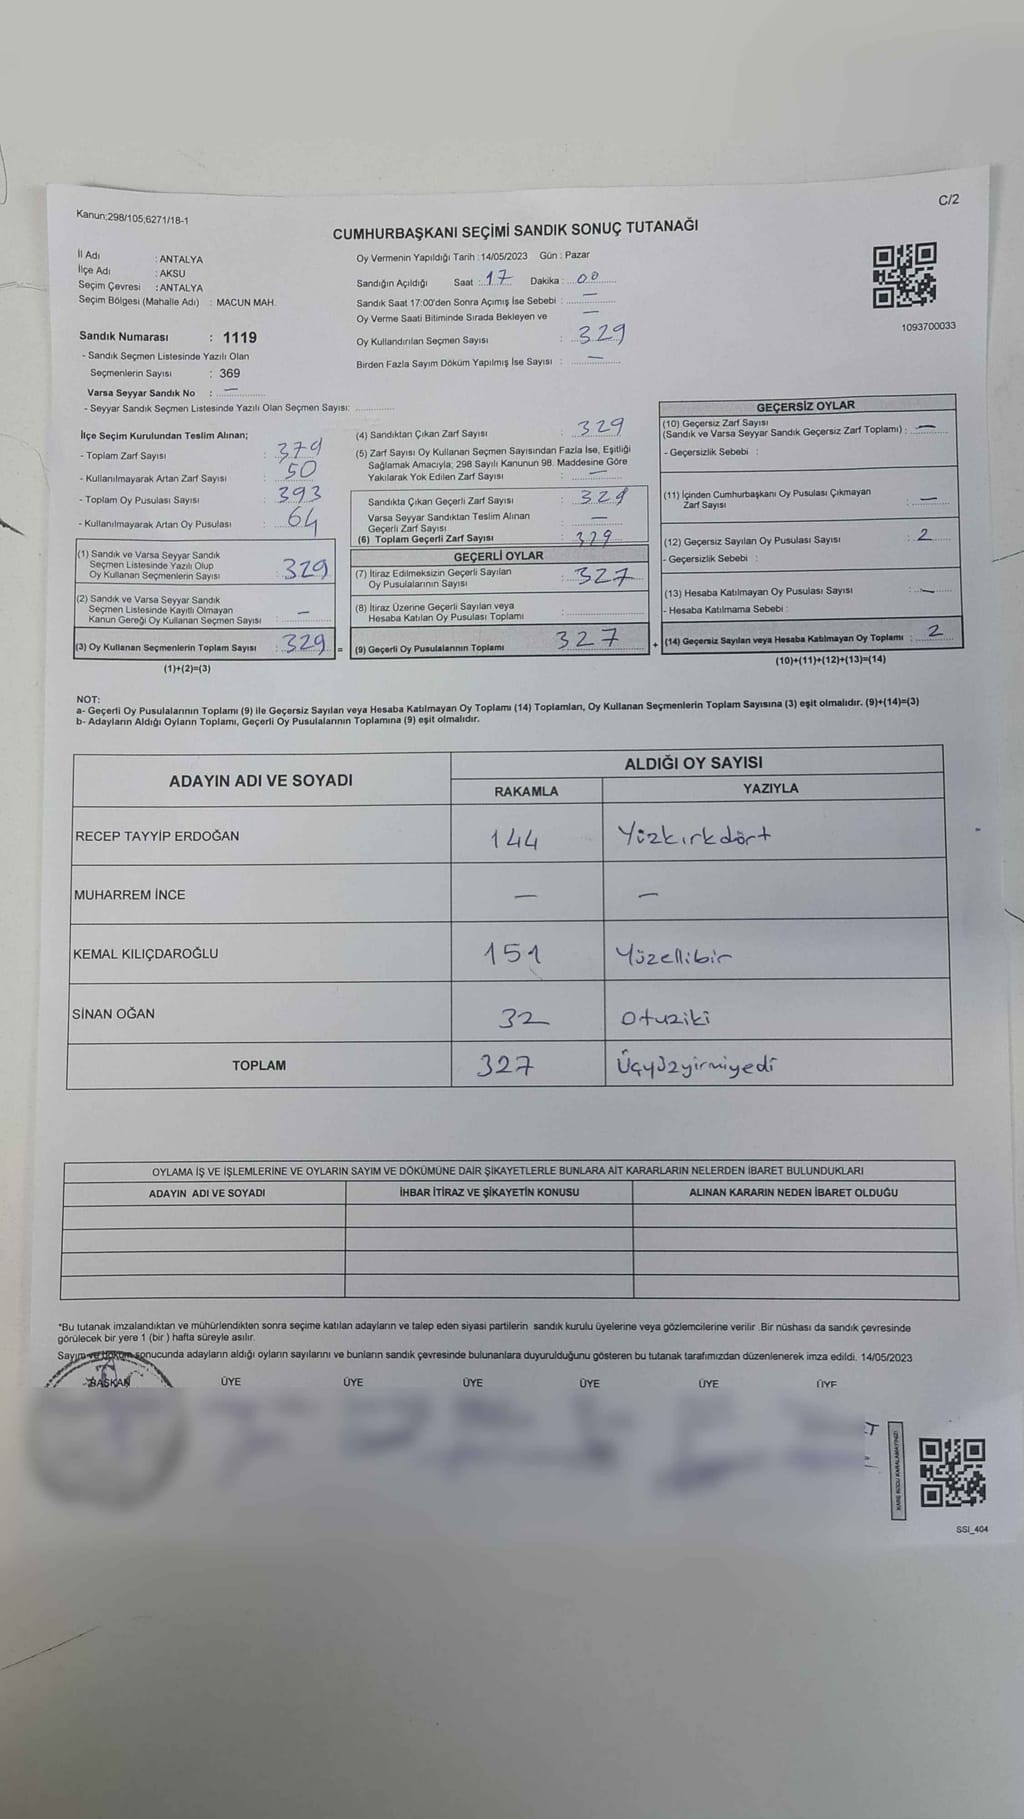 Kanun;298/105;6271/18-1
C/2
CUMHURBAŞKANI SEÇİMİ SANDIK SONUÇ TUTANAĞI
İl Adı : ANTALYA
İlçe Adı : AKSU
Seçim Çevresi : ANTALYA
Seçim Bölgesi (Mahalle Adı) : MACUN MAH.
Sandık Numarası : 1119
- Sandık Seçmen Listesinde Yazılı Olan
Seçmenlerin Sayısı : 369
Varsa Seyyar Sandık No : —
- Seyyar Sandık Seçmen Listesinde Yazılı Olan Seçmen Sayısı: ..............
Oy Vermenin Yapıldığı Tarih : 14/05/2023 Gün : Pazar
Sandığın Açıldığı Saat : 17 Dakika : 00
Sandık Saat 17:00'den Sonra Açımış İse Sebebi : —
Oy Verme Saati Bitiminde Sırada Bekleyen ve —
Oy Kullandırılan Seçmen Sayısı : 329
Birden Fazla Sayım Döküm Yapılmış İse Sayısı : —
1093700033
İlçe Seçim Kurulundan Teslim Alınan;
- Toplam Zarf Sayısı : 379
- Kullanılmayarak Artan Zarf Sayısı : 50
- Toplam Oy Pusulası Sayısı : 393
- Kullanılmayarak Artan Oy Pusulası : 64
(1) Sandık ve Varsa Seyyar Sandık
Seçmen Listesinde Yazılı Olup
Oy Kullanan Seçmenlerin Sayısı : 329
(2) Sandık ve Varsa Seyyar Sandık
Seçmen Listesinde Kayıtlı Olmayan
Kanun Gereği Oy Kullanan Seçmen Sayısı : —
(3) Oy Kullanan Seçmenlerin Toplam Sayısı : 329 =
(1)+(2)=(3)
(4) Sandıktan Çıkan Zarf Sayısı : 329
(5) Zarf Sayısı Oy Kullanan Seçmen Sayısından Fazla İse, Eşitliği
Sağlamak Amacıyla; 298 Sayılı Kanunun 98. Maddesine Göre
Yakılarak Yok Edilen Zarf Sayısı : —
Sandıkta Çıkan Geçerli Zarf Sayısı : 329
Varsa Seyyar Sandıktan Teslim Alınan
Geçerli Zarf Sayısı : —
(6) Toplam Geçerli Zarf Sayısı : 329
GEÇERLİ OYLAR
(7) İtiraz Edilmeksizin Geçerli Sayılan
Oy Pusulalarının Sayısı : 327
(8) İtiraz Üzerine Geçerli Sayılan veya
Hesaba Katılan Oy Pusulası Toplamı : ..............
(9) Geçerli Oy Pusulalarının Toplamı 327 +
GEÇERSİZ OYLAR
(10) Geçersiz Zarf Sayısı
(Sandık ve Varsa Seyyar Sandık Geçersiz Zarf Toplamı) : —
- Geçersizlik Sebebi :
(11) İçinden Cumhurbaşkanı Oy Pusulası Çıkmayan
Zarf Sayısı : —
(12) Geçersiz Sayılan Oy Pusulası Sayısı : 2
- Geçersizlik Sebebi :
(13) Hesaba Katılmayan Oy Pusulası Sayısı : —
- Hesaba Katılmama Sebebi :
(14) Geçersiz Sayılan veya Hesaba Katılmayan Oy Toplamı : 2
(10)+(11)+(12)+(13)=(14)
NOT:
a- Geçerli Oy Pusulalarının Toplamı (9) ile Geçersiz Sayılan veya Hesaba Katılmayan Oy Toplamı (14) Toplamları, Oy Kullanan Seçmenlerin Toplam Sayısına (3) eşit olmalıdır. (9)+(14)=(3)
b- Adayların Aldığı Oyların Toplamı, Geçerli Oy Pusulalarının Toplamına (9) eşit olmalıdır.
ADAYIN ADI VE SOYADI ALDIĞI OY SAYISI
RAKAMLA YAZIYLA
RECEP TAYYİP ERDOĞAN 144 Yüzkırkdört
MUHARREM İNCE — —
KEMAL KILIÇDAROĞLU 151 Yüzellibir
SİNAN OĞAN 32 Otuziki
TOPLAM 327 Üçyüzyirmiyedi
OYLAMA İŞ VE İŞLEMLERİNE VE OYLARIN SAYIM VE DÖKÜMÜNE DAİR ŞİKAYETLERLE BUNLARA AİT KARARLARIN NELERDEN İBARET BULUNDUKLARI
ADAYIN ADI VE SOYADI İHBAR İTİRAZ VE ŞİKAYETİN KONUSU ALINAN KARARIN NEDEN İBARET OLDUĞU
*Bu tutanak imzalandıktan ve mühürlendikten sonra seçime katılan adayların ve talep eden siyasi partilerin sandık kurulu üyelerine veya gözlemcilerine verilir .Bir nüshası da sandık çevresinde
görülecek bir yere 1 (bir ) hafta süreyle asılır.
Sayım ve döküm sonucunda adayların aldığı oyların sayılarını ve bunların sandık çevresinde bulunanlara duyurulduğunu gösteren bu tutanak tarafımızdan düzenlenerek imza edildi. 14/05/2023
BAŞKAN ÜYE ÜYE ÜYE ÜYE ÜYE ÜYE
KARE KODU KARALAMAYINIZ!
SSI_404